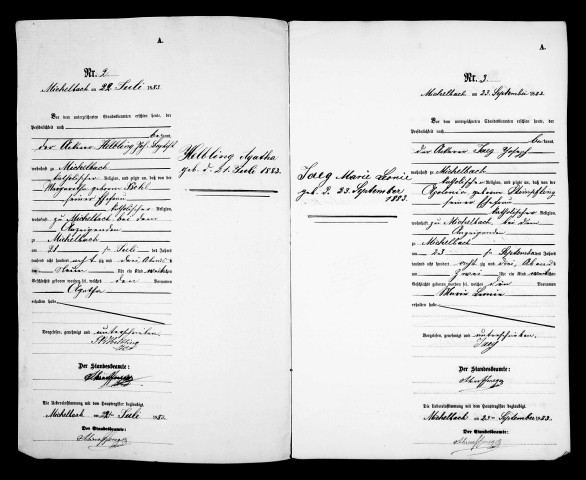 A.
Nr. 2.
Michelbach am 22 Juli 1883
Vor dem unterzeichneten Standesbeamten erschien heute, der
Persönlichkeit nach
kannt,
der Ackerer Helbling Jos.
wohnhaft zu Michelbach
katholischer Religion, und zeigte an, daß von der
Margaretha geborene
seiner Ehefrau
katholischer Religion,
wohnhaft zu Michelbach bei dem
Anzeigenden
zu Michelbach
am 21 ten Juli des Jahres
tausend acht hundert acht zig und drei Abends
um neun Uhr ein Kind weiblichen
Geschlechts geboren worden sei, welches den Vornamen
Agatha
erhalten habe
Vorgelesen, genehmigt und unterschrieben.
Helbling
Der Standesbeamte:
Die Uebereinstimmung mit dem Hauptregister beglaubigt.
Michelbach am 22 ten Juli 1883.
Der Standesbeamte:
Helbling Agatha
geb. d. 21. Juli 1883.
Jaeg Marie Leonie
geb. d. 23. September
1883.
A.
Nr. 3.
Michelbach am 23. September 1883.
Vor dem unterzeichneten Standesbeamten erschien heute, der
Persönlichkeit nach
bekannt,
der Ackerer Jaeg Joseph
wohnhaft zu Michelbach
katholischer Religion, und zeigte an, daß von der
Apolonia geborene
seiner Ehefrau
katholischer Religion,
wohnhaft zu Michelbach bei dem
Anzeigenden
zu Michelbach
am 23 ten September des Jahres
tausend acht hundert acht zig und drei, Abends
um zwei Uhr ein Kind weiblichen
Geschlechts geboren worden sei, welches den Vornamen
Marie Leonie
erhalten habe
Vorgelesen, genehmigt und unterschrieben.
Jaeg
Der Standesbeamte:
Die Uebereinstimmung mit dem Hauptregister beglaubigt.
Michelbach am 23 ten September 1883.
Der Standesbeamte: